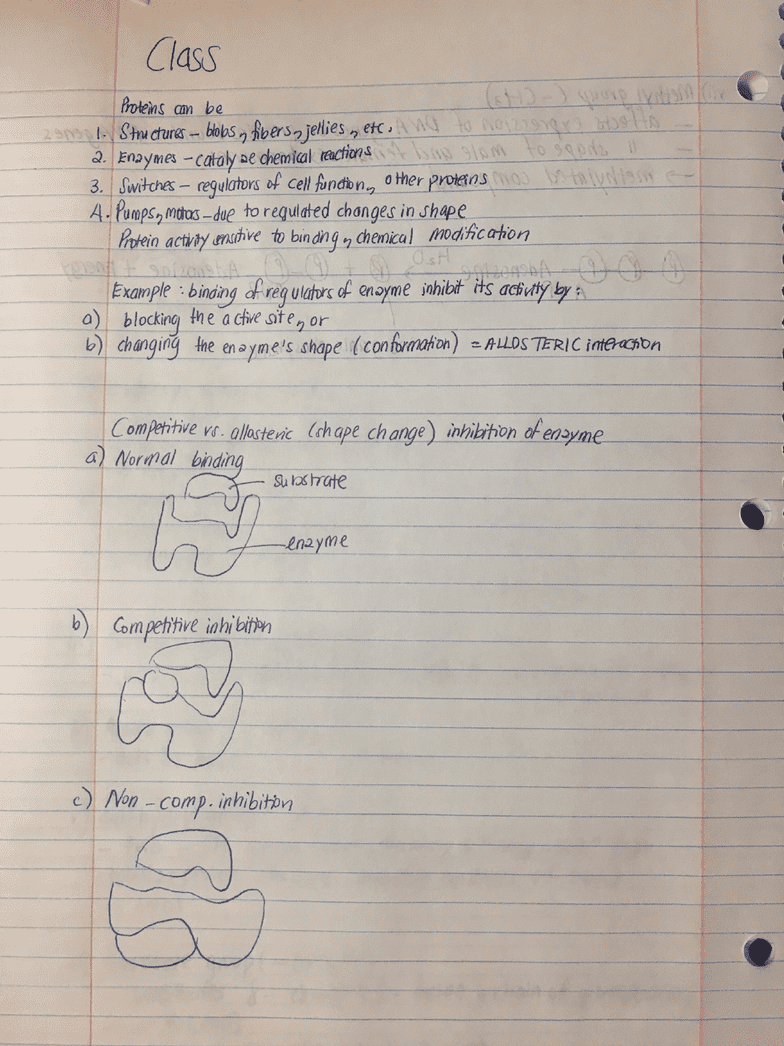 Class
Proteins can be
1. Structures – blobs, fibers, jellies, etc.
2. Enzymes – catalyze chemical reactions
3. Switches – regulators of cell function, other proteins
4. Pumps, motors – due to regulated changes in shape
Protein activity sensitive to binding, chemical modification
Example: binding of regulators of enzyme inhibit its activity by:
a) blocking the active site, or
b) changing the enzyme's shape (conformation) = ALLOSTERIC interaction
Competitive vs. allosteric (shape change) inhibition of enzyme
a) Normal binding
substrate
enzyme
b) Competitive inhibition
c) Non-comp. inhibition